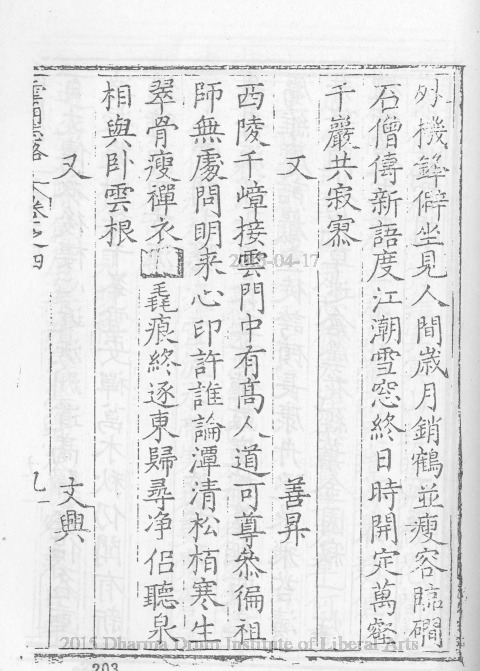 外機鋒僻坐見人間歲月銷鶴並瘦容臨磵
石僧傳新語度江潮雪窓終日時開定萬壑
千巖共寂寥
又 善昇
西陵千嶂接雲門中有髙人道可尊叅徧祖
師無處問明来心印許誰論潭清松栢寒生
翠骨瘦禪衣 毳痕終逐東歸尋净侣聽泉
相與卧雲根
又 文興
卷之四 九
2015-04-17
2015 Dharma Drum Institute of Liberal Arts
203